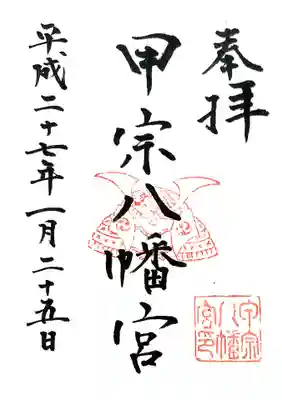 奉拝
甲宗八幡宮
平成二十七年一月二十五日
甲宗八幡宮印